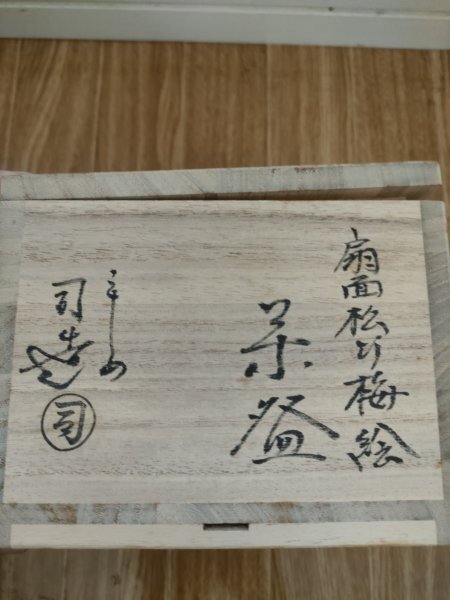 扇面松竹梅絵
茶盌
司造
司